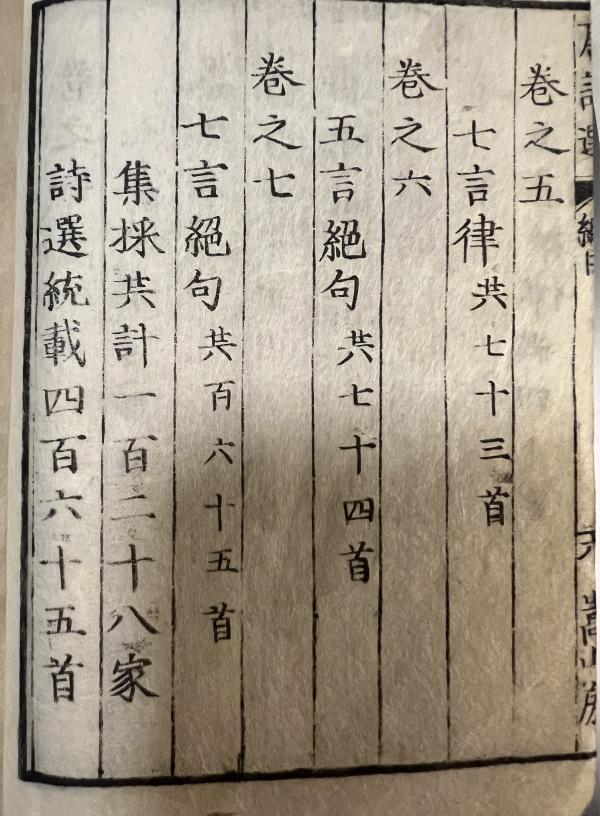 唐詩選 總目 六 嵩山房
卷之五
七言律 共七十三首
卷之六
五言絕句 共七十四首
卷之七
七言絕句 共百六十五首
集採共計一百二十八家
詩選統載四百六十五首